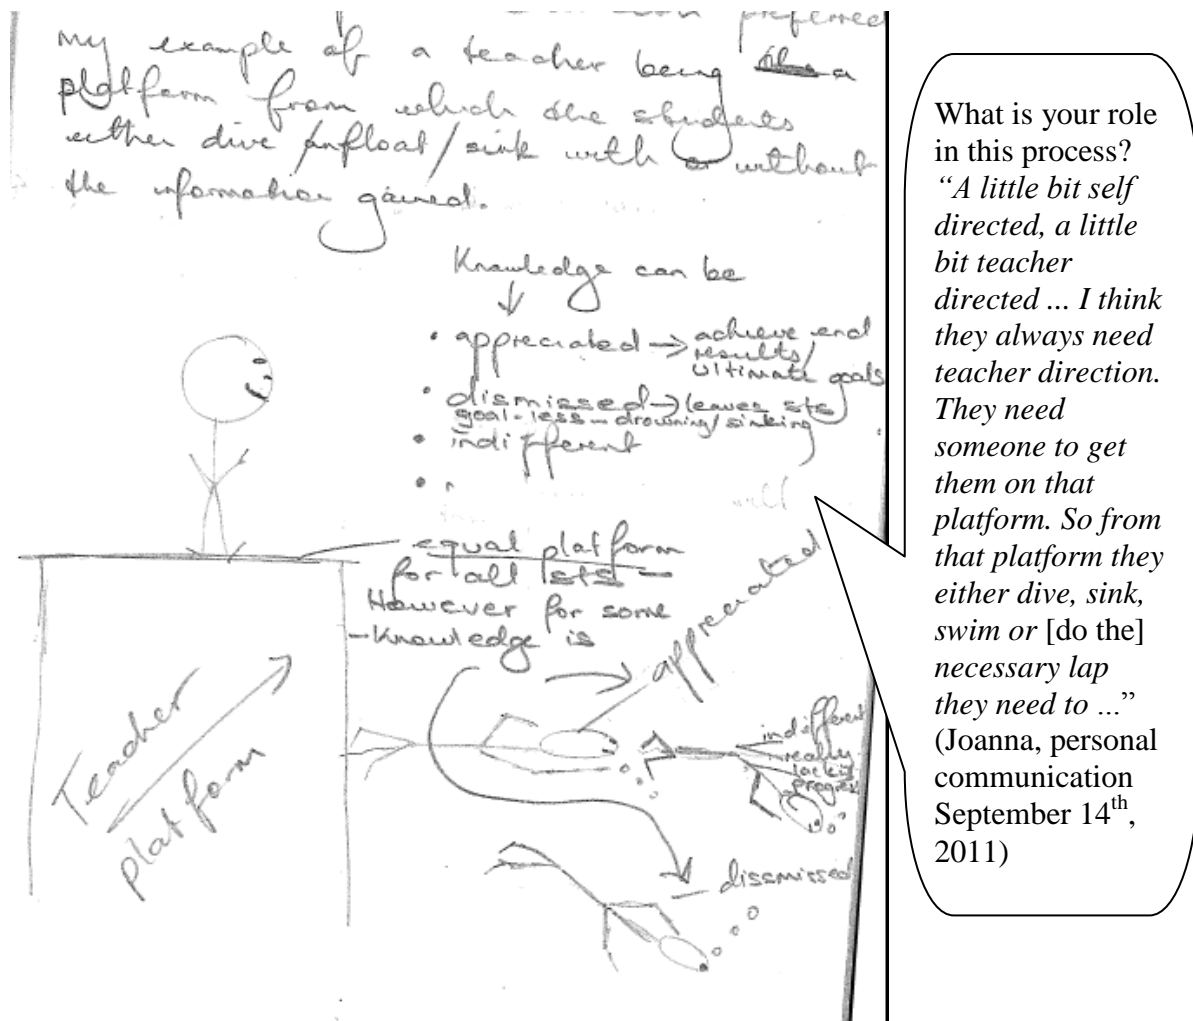 preferred
my example of a teacher being a
platform from which the students
either dive /float/sink with or without
the information gained.
Knowledge can be
• appreciated → achieve end
results/
ultimate goals
• dismissed → leaves sts
goal-less – drowning/sinking
• indifferent
•
will
equal platform
for all sts –
However for some
– Knowledge is
appreciated
Teacher
platform
indifferent
really
lacking
progress
dissmissed
What is your role
in this process?
“A little bit self
directed, a little
bit teacher
directed ... I think
they always need
teacher direction.
They need
someone to get
them on that
platform. So from
that platform they
either dive, sink,
swim or [do the]
necessary lap
they need to ...”
(Joanna, personal
communication
September 14th,
2011)